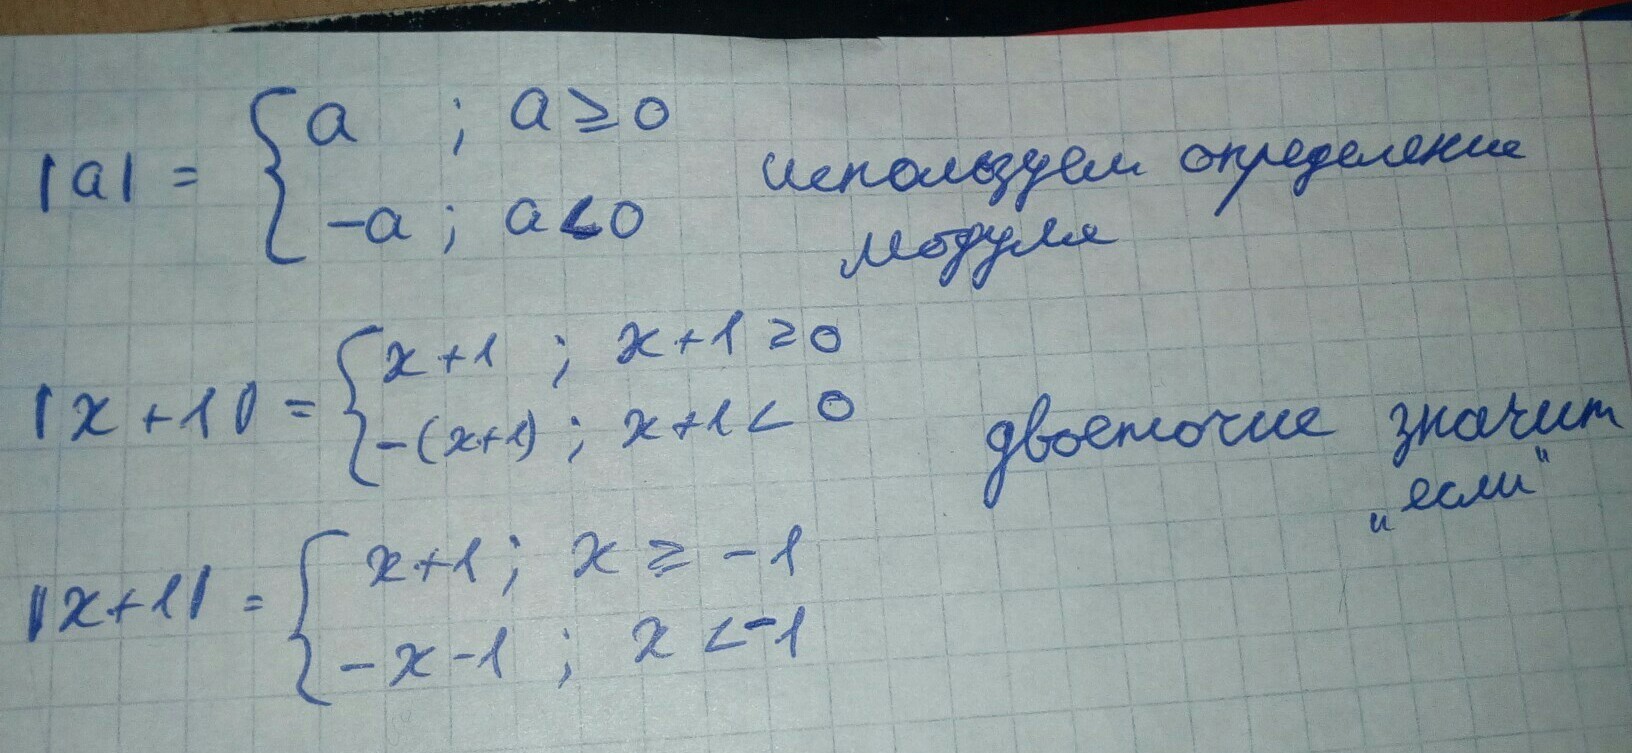 |a| = { a ; a ≥ 0
-a ; a < 0
используем определение
модуля
|x+1| = { x+1 ; x+1 ≥ 0
-(x+1) ; x+1 < 0
двоеточие значит
„если“
|x+1| = { x+1 ; x ≥ -1
-x-1 ; x < -1